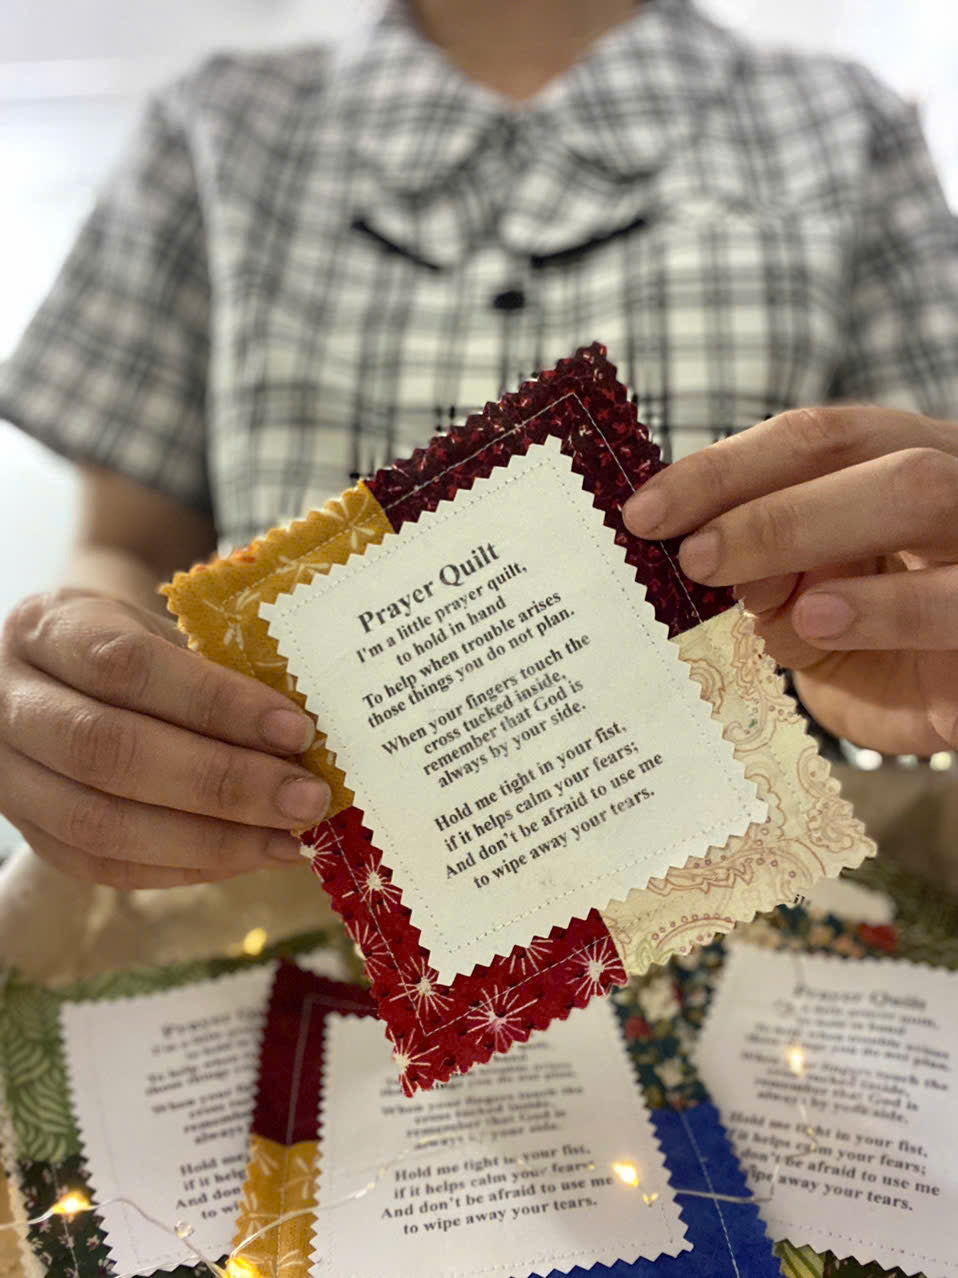 Prayer Quilt
I'm a little prayer quilt,
to hold in hand
To help when trouble arises
those things you do not plan.
When your fingers touch the
cross tucked inside,
remember that God is
always by your side.
Hold me tight in your fist,
if it helps calm your fears;
And don't be afraid to use me
to wipe away your tears.
Prayer
I'm a little pra
to hol
To help w
those things
When your f
cross
remem
alway
Hold me
if it hel
And don
to wi
When your fingers touch the
cross tucked inside,
remember that God is
always by your side.
Hold me tight in your fist,
if it helps calm your fears
And don't be afraid to use me
to wipe away your tears.
Prayer Quilt
a little prayer quilt,
to hold in hand
To help when trouble arises
those things you do not plan.
When your fingers touch the
cross tucked inside,
remember that God is
always by your side.
Hold me tight in your fist,
it helps calm your fears;
don't be afraid to use me
wipe away your tears.